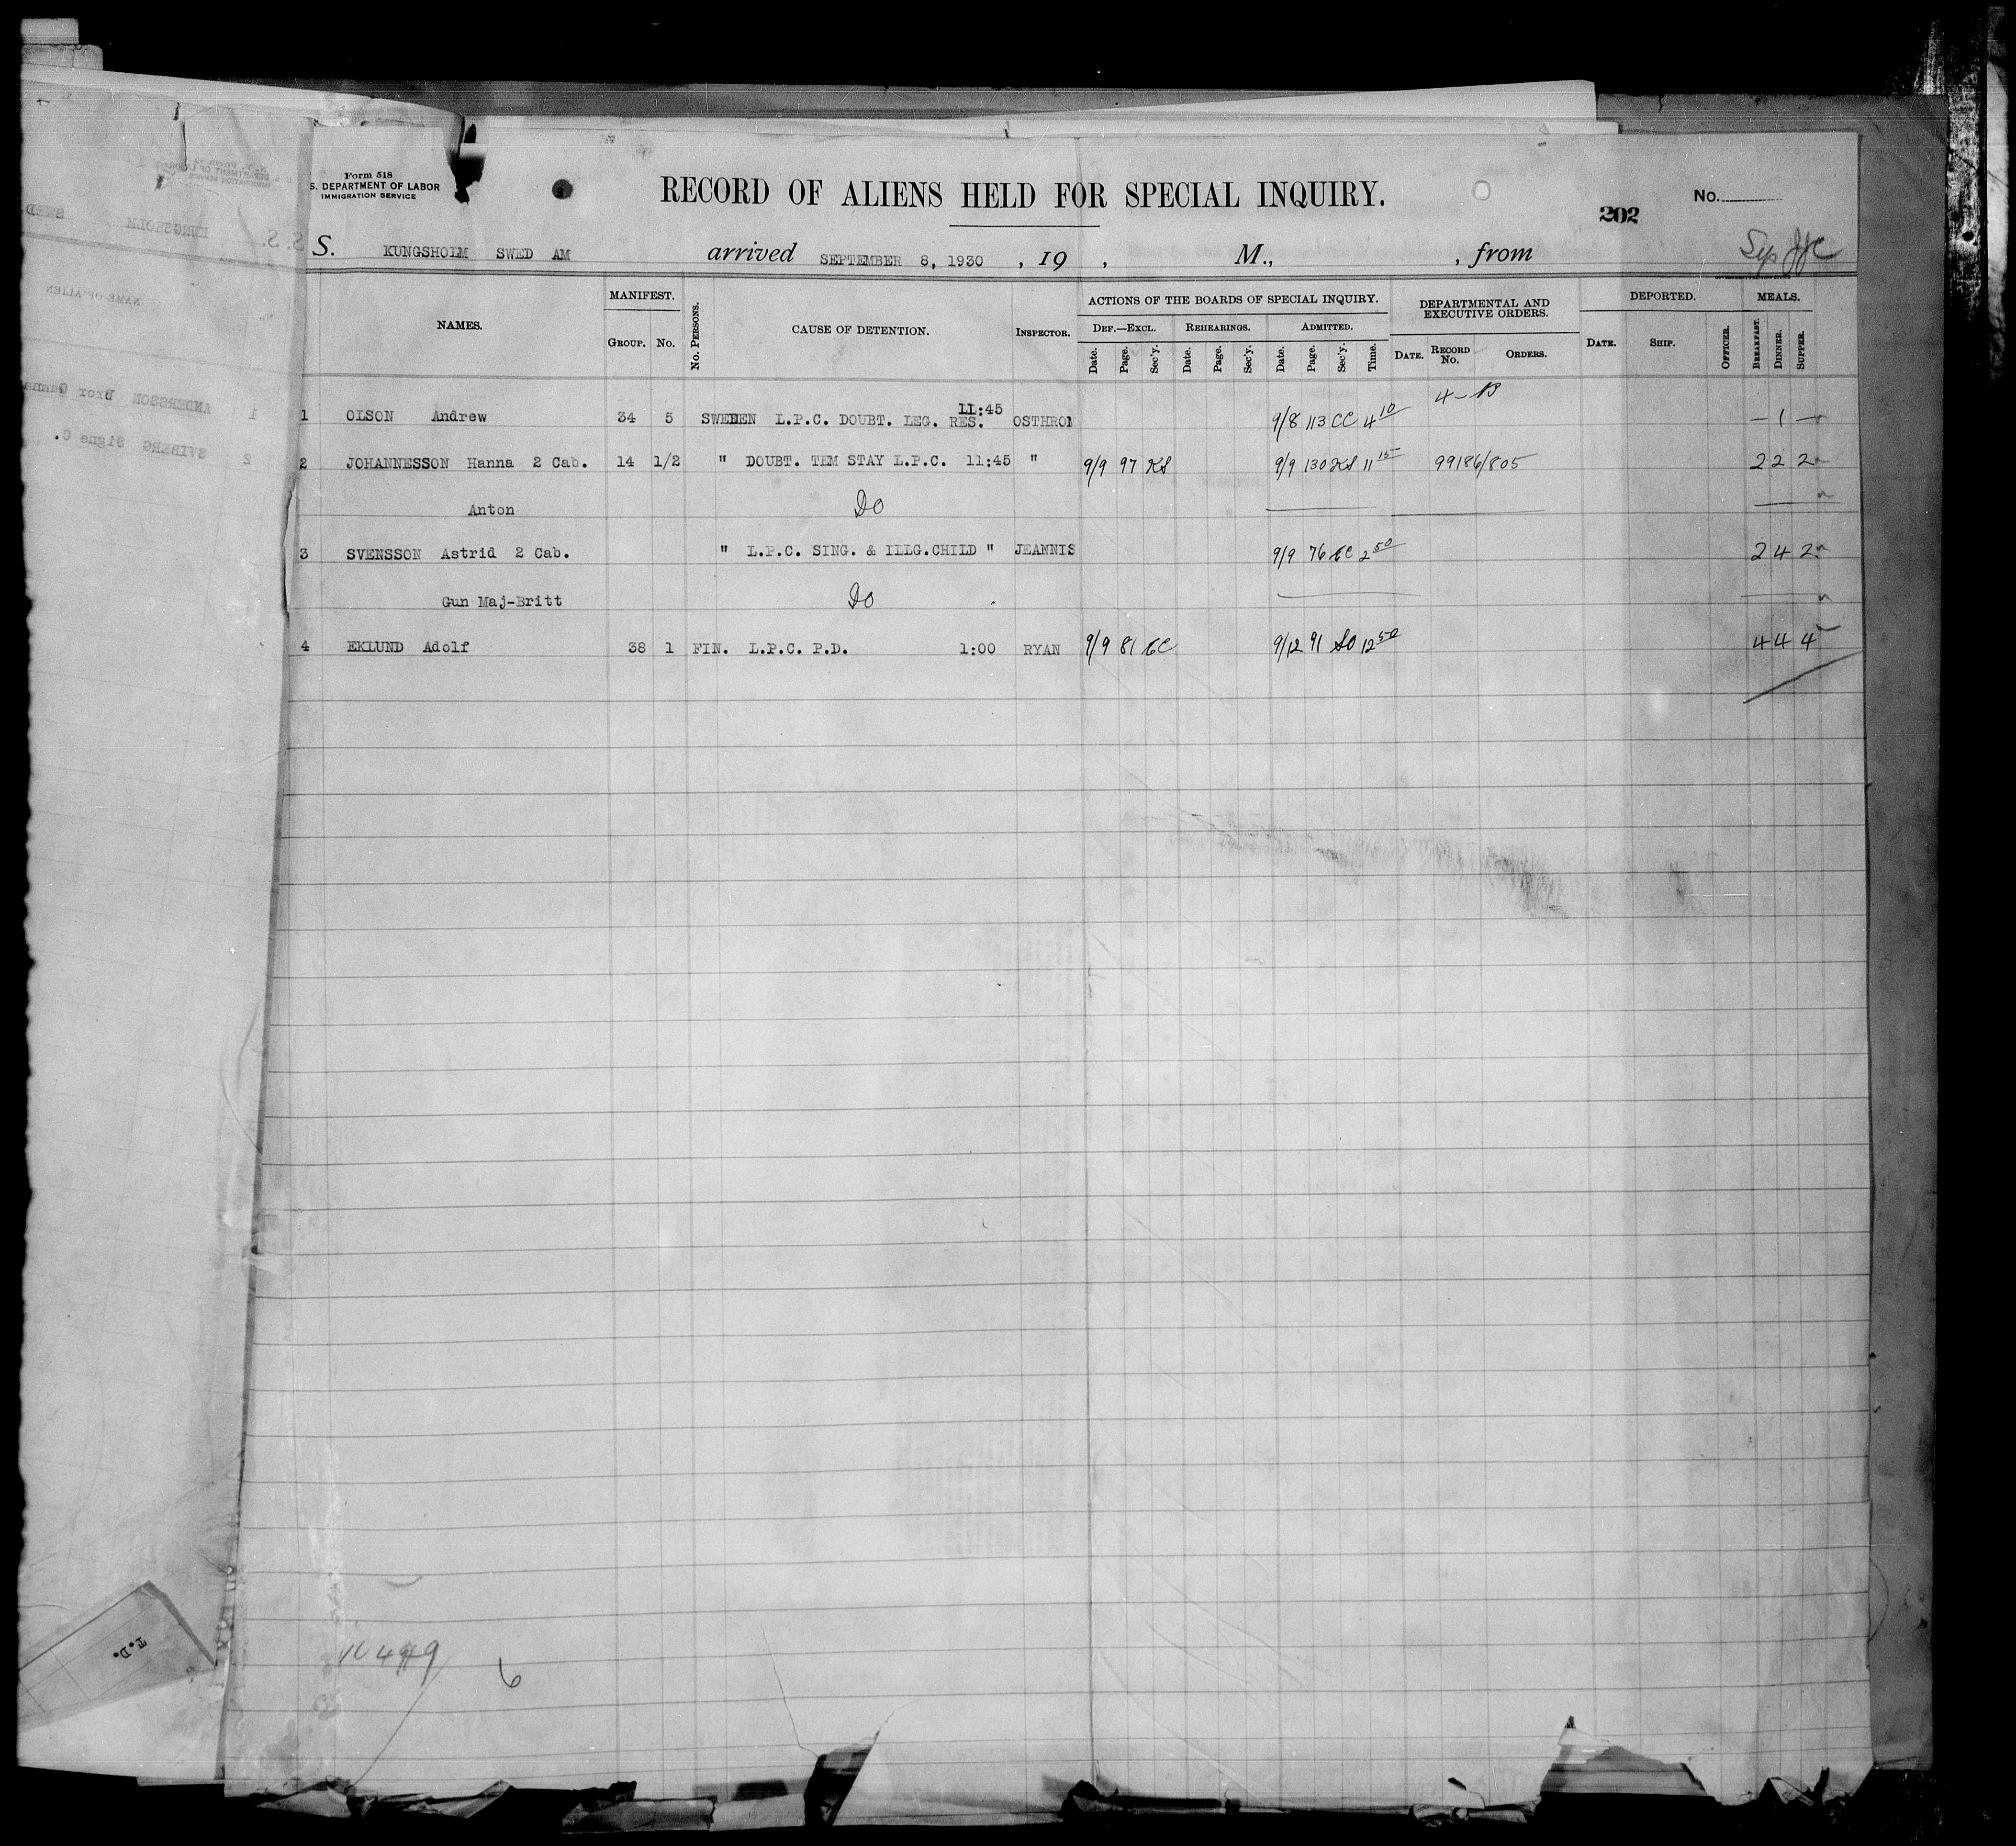 Form 518
S. DEPARTMENT OF LABOR
IMMIGRATION SERVICE
RECORD OF ALIENS HELD FOR SPECIAL INQUIRY.
202
No.
S. KUNGSHOLM SWED AM arrived SEPTEMBER 8, 1930 , 19 , M., , from
NAMES.
MANIFEST.
GROUP. No.
No. PERSONS.
CAUSE OF DETENTION.
INSPECTOR.
ACTIONS OF THE BOARDS OF SPECIAL INQUIRY.
DEF.—EXCL. REHEARINGS. ADMITTED.
Date. Page. Sec'y. Date. Page. Sec'y. Date. Page. Sec'y. Time.
DEPARTMENTAL AND
EXECUTIVE ORDERS.
DATE. RECORD No. ORDERS.
DEPORTED.
DATE. SHIP. OFFICER.
MEALS.
BREAKFAST. DINNER. SUPPER.
4-B
1 OLSON Andrew 34 5 SWEDEN L.P.C. DOUBT. LEG. RES. 11:45 OSTHROM 9/8 113 CC 4 10 — 1 —
2 JOHANNESSON Hanna 2 Cab. 14 1/2 " DOUBT. TEM STAY L.P.C. 11:45 " 9/9 97 KS 9/9 130 KS 11 15 99186/805 2 2 2
Anton DO
3 SVENSSON Astrid 2 Cab. " L.P.C. SING. & ILLG.CHILD " JEANNIS 9/9 76 EC 2 50 2 4 2
Gun Maj-Britt DO
4 EKLUND Adolf 38 1 FIN. L.P.C. P.D. 1:00 RYAN 9/9 81 EC 9/12 91 SO 12 50 4 4 4
6
S. S. KUNGSHOLM SWED
NAME OF ALIEN
1 ANDERSSON Bror Gunna
2 SVIBERG Signe C.
T.D.